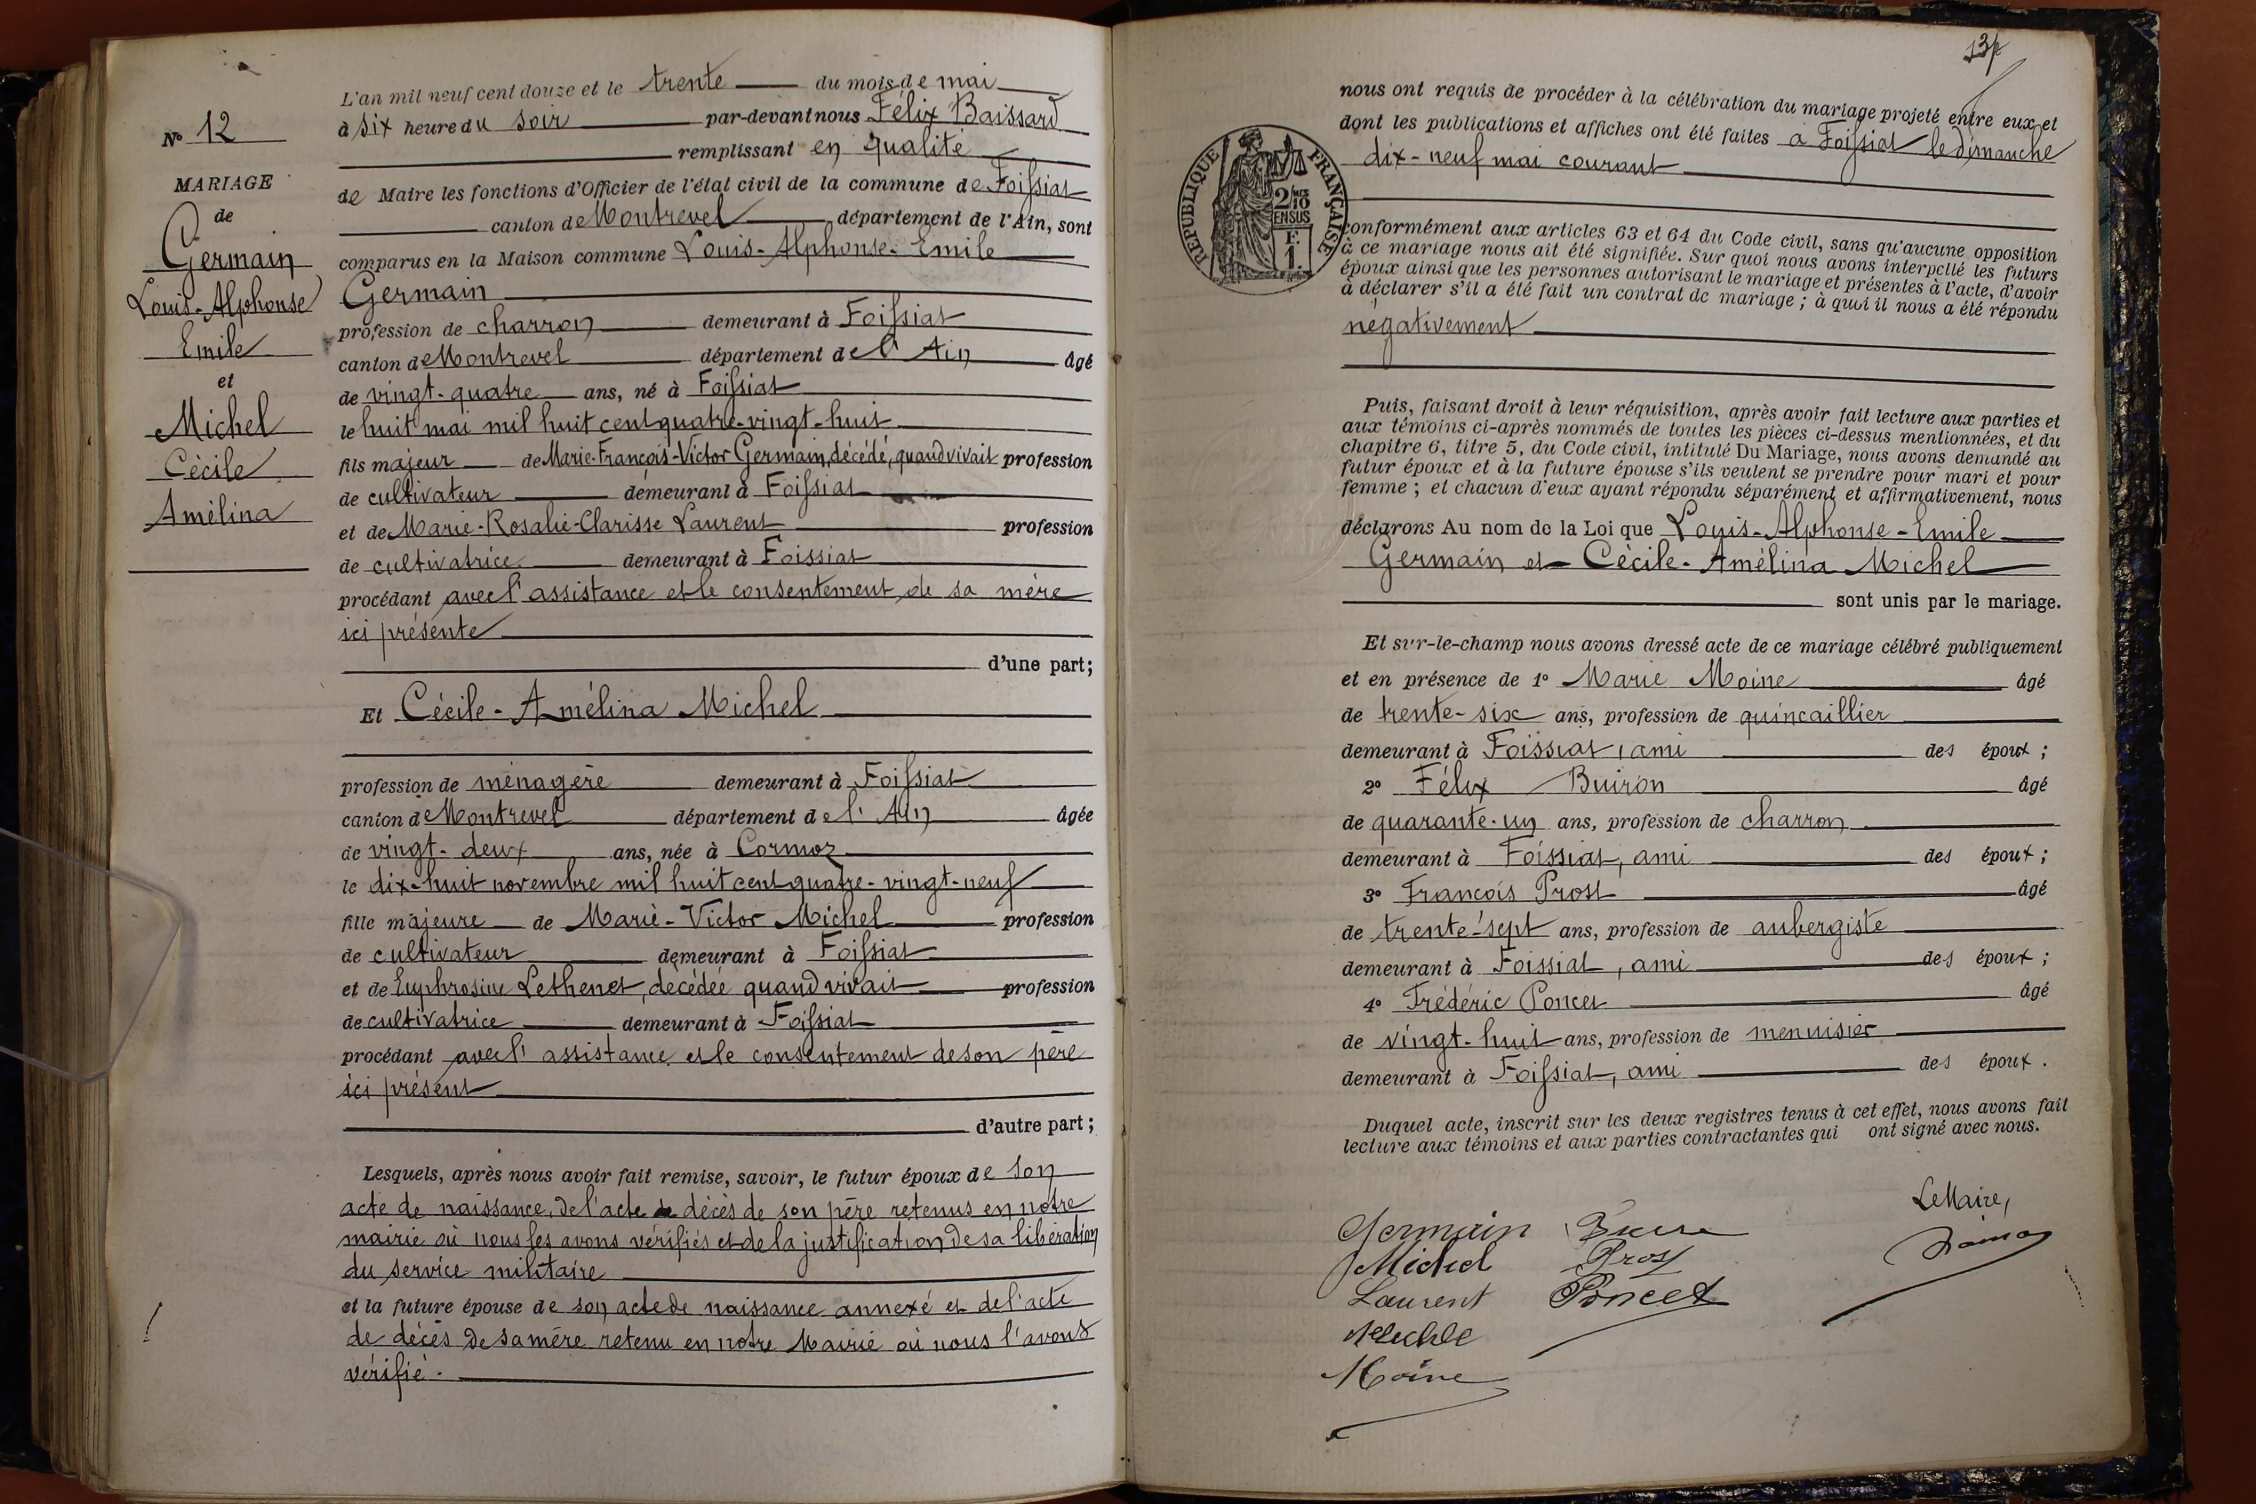 N° 12
MARIAGE
de
Germain
Louis-Alphonse
Emile
et
Michel
Cécile
Amélina
L'an mil neuf cent douze et le trente du mois de mai
à six heure du soir par-devant nous Félix Baissard
remplissant en qualité
de Maire les fonctions d'Officier de l'état civil de la commune de Foissiat
canton de Montrevel département de l'Ain, sont
comparus en la Maison commune Louis-Alphonse-Emile
Germain
profession de charron demeurant à Foissiat
canton de Montrevel département de l'Ain âgé
de vingt-quatre ans, né à Foissiat
le huit mai mil huit cent quatre-vingt-huit
fils majeur de Marie-François-Victor Germain, décédé, quand vivait profession
de cultivateur demeurant à Foissiat
et de Marie-Rosalie-Clarisse Laurent profession
de cultivatrice demeurant à Foissiat
procédant avec l'assistance et le consentement de sa mère
ici présente
d'une part;
Et Cécile-Amélina Michel
profession de ménagère demeurant à Foissiat
canton de Montrevel département de l'Ain âgée
de vingt-deux ans, née à Cormoz
le dix-huit novembre mil huit cent quatre-vingt-neuf
fille majeure de Marie-Victor Michel profession
de cultivateur demeurant à Foissiat
et de Euphrosine Lethenet, décédée quand vivait profession
de cultivatrice demeurant à Foissiat
procédant avec l'assistance et le consentement de son père
ici présent
d'autre part;
Lesquels, après nous avoir fait remise, savoir, le futur époux de son
acte de naissance, de l'acte de décès de son père retenus en notre
mairie où nous les avons vérifiés et de la justification de sa libération
du service militaire
et la future épouse de son acte de naissance annexé et de l'acte
de décès de sa mère retenu en notre Mairie où nous l'avons
vérifié.
13
nous ont requis de procéder à la célébration du mariage projeté entre eux et
dont les publications et affiches ont été faites a Foissiat le dimanche
dix-neuf mai courant
REPUBLIQUE FRANÇAISE
2/10
EN SUS
F.
1.
conformément aux articles 63 et 64 du Code civil, sans qu'aucune opposition
à ce mariage nous ait été signifiée. Sur quoi nous avons interpellé les futurs
époux ainsi que les personnes autorisant le mariage et présentes à l'acte, d'avoir
à déclarer s'il a été fait un contrat de mariage ; à quoi il nous a été répondu
négativement
Puis, faisant droit à leur réquisition, après avoir fait lecture aux parties et
aux témoins ci-après nommés de toutes les pièces ci-dessus mentionnées, et du
chapitre 6, titre 5, du Code civil, intitulé Du Mariage, nous avons demandé au
futur époux et à la future épouse s'ils veulent se prendre pour mari et pour
femme ; et chacun d'eux ayant répondu séparément et affirmativement, nous
déclarons Au nom de la Loi que Louis-Alphonse-Emile
Germain et Cécile-Amélina Michel
sont unis par le mariage.
Et sur-le-champ nous avons dressé acte de ce mariage célébré publiquement
et en présence de 1° Marie Moine âgé
de trente-six ans, profession de quincaillier
demeurant à Foissiat, ami des époux ;
2° Félix Buiron âgé
de quarante-un ans, profession de charron
demeurant à Foissiat, ami des époux ;
3° François Prost âgé
de trente-sept ans, profession de aubergiste
demeurant à Foissiat, ami des époux ;
4° Frédéric Poncet âgé
de vingt-huit ans, profession de menuisier
demeurant à Foissiat, ami des époux.
Duquel acte, inscrit sur les deux registres tenus à cet effet, nous avons fait
lecture aux témoins et aux parties contractantes qui ont signé avec nous.
Le Maire,
Germain
Michel Prost
Laurent Poncet
Moine